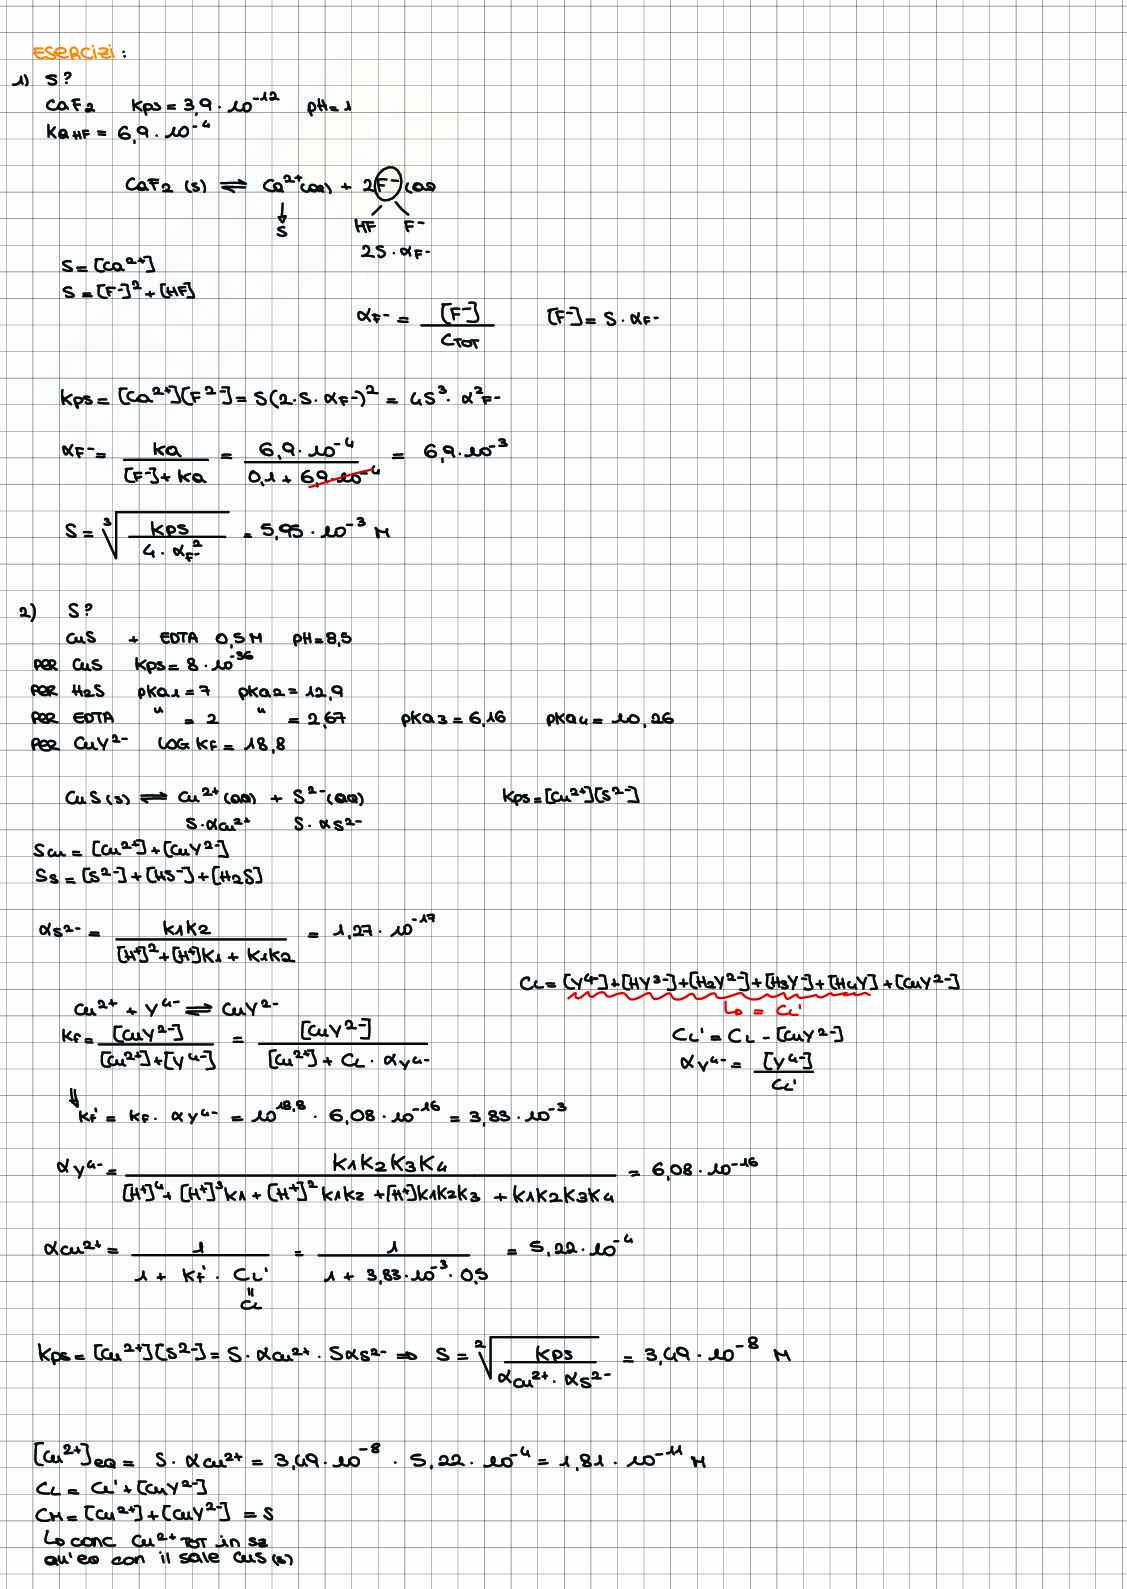 ESERCIZI:
1) S?
CaF2 Kps = 3,9 · 10⁻¹² pH = 1
Ka HF = 6,9 · 10⁻⁴
CaF2 (s) ⇌ Ca²⁺(aq) + 2F⁻(aq)
↓ HF F⁻
S
2S · αF⁻
S = [Ca²⁺]
S = [F⁻]² + [HF]
αF⁻ = [F⁻] / CTOT [F⁻] = S · αF⁻
Kps = [Ca²⁺][F²⁻] = S(2·S·αF⁻)² = 4S³ · α²F⁻
αF⁻ = Ka / [F⁻] + Ka = 6,9 · 10⁻⁴ / 0,1 + 6,9 · 10⁻⁴ = 6,9 · 10⁻³
S = ³√(Kps / 4 · αF⁻²) = 5,95 · 10⁻³ M
2) S?
CuS + EDTA 0,5 M pH = 8,5
PER CuS Kps = 8 · 10⁻³⁶
PER H2S pKa1 = 7 pKa2 = 12,9
PER EDTA " = 2 " = 2,67 pKa3 = 6,16 pKa4 = 10,26
PER CuY²⁻ LOG KF = 18,8
CuS(s) ⇌ Cu²⁺(aq) + S²⁻(aq) Kps = [Cu²⁺][S²⁻]
S·αCu²⁺ S·αS²⁻
SCu = [Cu²⁺] + [CuY²⁻]
SS = [S²⁻] + [HS⁻] + [H2S]
αS²⁻ = K1K2 / [H⁺]² + [H⁺]K1 + K1K2 = 1,27 · 10⁻¹⁷
CL = [Y⁴⁻] + [HY³⁻] + [H2Y²⁻] + [H3Y⁻] + [H4Y] + [CuY²⁻]
↳ = CL'
Cu²⁺ + Y⁴⁻ ⇌ CuY²⁻
KF = [CuY²⁻] / [Cu²⁺] + [Y⁴⁻] = [CuY²⁻] / [Cu²⁺] + CL · αY⁴⁻
CL' = CL - [CuY²⁻]
αY⁴⁻ = [Y⁴⁻] / CL'
⇓
KF' = KF · αY⁴⁻ = 10¹⁸,⁸ · 6,08 · 10⁻¹⁶ = 3,83 · 10⁻³
αY⁴⁻ = K1K2K3K4 / [H⁺]⁴ + [H⁺]³K1 + [H⁺]²K1K2 + [H⁺]K1K2K3 + K1K2K3K4 = 6,08 · 10⁻¹⁶
αCu²⁺ = 1 / 1 + KF' · CL' = 1 / 1 + 3,83 · 10⁻³ · 0,5 = 5,22 · 10⁻⁴
=
CL
Kps = [Cu²⁺][S²⁻] = S · αCu²⁺ · SαS²⁻ ⇒ S = ²√(Kps / αCu²⁺ · αS²⁻) = 3,49 · 10⁻⁸ M
[Cu²⁺]eq = S · αCu²⁺ = 3,49 · 10⁻⁸ · 5,22 · 10⁻⁴ = 1,81 · 10⁻¹¹ M
CL = CL' + [CuY²⁻]
CM = [Cu²⁺] + [CuY²⁻] = S
↳ conc Cu²⁺ TOT in sz
qu'eq con il sale CuS(s)